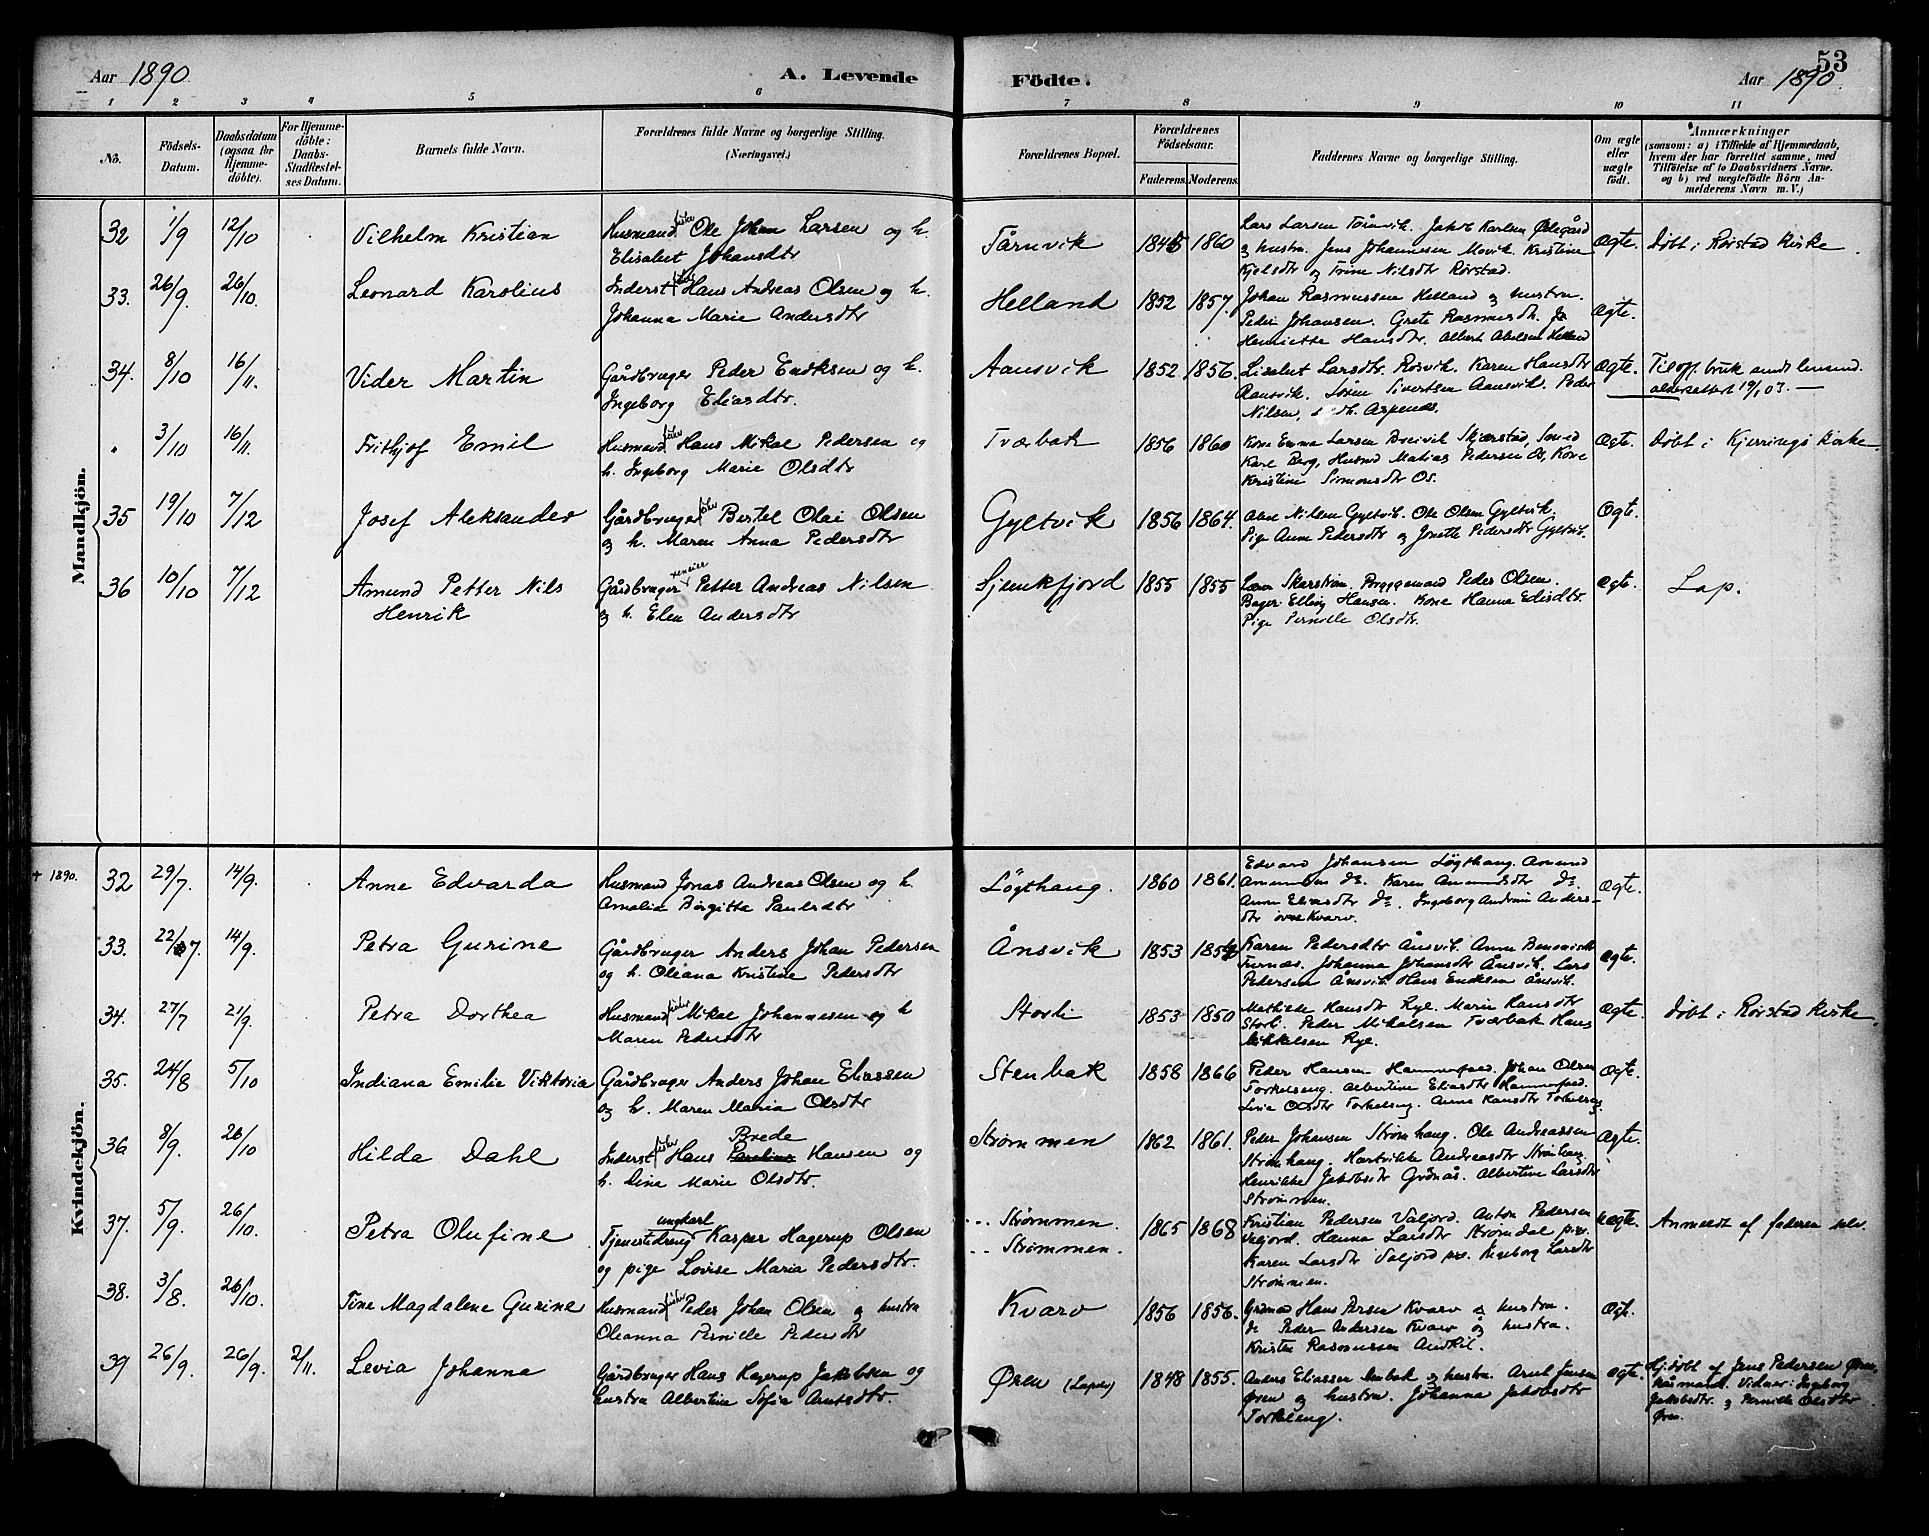 53
Aar 1890. A. Levende Födte. Aar 1890.
1 2 3 4 5 6 7 8 9 10 11
No. Födsels-Datum. Daabsdatum (ogsaa for Hjemmedöbte). For Hjemmedöbte: Daabs-Stadfæstelses Datum. Barnets fulde Navn. Forældrenes fulde Navne og borgerlige Stilling. (Næringsvei.) Forældrenes Bopæl. Forældrenes Födselsaar. Faderens. Moderens. Faddernes Navne og borgerlige Stilling. Om ægte eller uægte födt. Anmærkninger (saasom: a) i Tilfælde af Hjemmedaab, hvem der har forrettet samme, med Tilföielse af to Daabsvidners Navne, og b) ved uægtefödte Börn Anmelderens Navn m. V.)
Mandkjön.
32 1/9 12/10 Vilhelm Kristian Husmand fisker Ole Johan Larsen og h. Tårnvik 1845 1860 Lars Larsen Tårnvik. Jakob Karlsen Ødegård Ægte. Døbt i Rørstad Kirke
Elisabet Johansdtr og hustru. Jens Johannesen Movik. Kristine
Kjelsdtr og Trine Nilsdtr Rørstad.
33. 26/9 26/10. Leonard Karolius Inderst fisker Hans Andreas Olsen og h. Helland 1852 1857. Johan Rasmussen Helland og hustru. Ægte.
Johanna Marie Andersdtr Peder Johansen. Grete Rasmusdtr.
Henriette Hansdtr. Albert Abelsen Helland
34. 8/10 16/11. Vider Martin Gårdbruger Peder Endksen og h. Aansvik 1852 1856. Lisabet Larsdtr. Rosvik. Karen Hansdtr Ægte.
Ingeborg Eliasdtr. Aansvik. Søren Sivertsen Aansvik. Peder
Nilsen, Aspenes.
3/10 16/11. Frithjof Emil Husmand fisker Hans Mikal Pedersen og Tværbak 1856 1860 Kone Emma Larsen Breivik Skjærstad, Smed Ægte. Døbt i Kjerringø Kirke.
h. Ingeborg Marie Olsdtr Karl Berg, Husmd Matias Pedersen Os, Kone
Kristine Simonsdtr Os.
35 19/10 7/12 Josef Aleksander Gårdbruger fisker Bertel Olai Olsen Gyltvik 1856 1864. Nilsen Gyltvik. Ole Olsen Gyltvik. Ægt.
og h. Maren Anna Pedersdtr Pige Anne Pedersdtr og Jonette Pedersdtr Gyltvik.
36 10/10 7/12 Amund Petter Nils Gårdbruger Petter Andreas Nilsen Sjunkfjord 1855 1855 Skarstrøm, Bryggemand Peder Olsen. Ægte. Lap.
Henrik og h. Elen Andersdtr Bager Elling Hansen. Kone Hanna Elisdtr.
Pige Pernille Olsdtr.
Kvindekjön.
+ 1890. 32 29/7. 14/9. Anne Edvarda Husmand Jonas Andreas Olsen og h. Løgthaug. 1860 1861. Edvard Johansen Løgthaug. Amund Ægte.
Amalia Birgitta Paulsdtr Amundsen do. Karen Amundsdtr do.
Anne Eliasdtr do. Ingeborg Andrine Anders-
dtr øvre Kvarv.
33. 22/7. 14/9. Petra Gurine Gårdbruger Anders Johan Pedersen Ånsvik 1853 1854 Karen Pedersdtr Ånsvik. Anne Benoni Ægte.
og h. Oliana Kristine Pedersdtr Furnes. Johanna Johansdtr Ånsvik. Lars
Pedersen Ånsvik Hans Endksen Ånsvik.
34. 27/7 21/9. Petra Dorthea Husmand fisker Mikal Johannesen og h Storli 1853 1850 Mathilde Hansdtr Rye. Marie Hansdtr Ægte. Døbt i Rørstad Kirke.
Maren Pedersdtr Storli. Peder Mikalsen Tværbak Hans
Mikkelsen Rye.
35. 24/8 5/10 Indiana Emilie Viktoria Gårdbruger Anders Johan Eliassen Stenbak 1858 1866 Peder Hansen Hammerfald. Johan Olsen Ægt.
og h. Maren Maria Olsdtr Torkelseng. Albertine Eliasdtr Hammerfald.
Lina Olsdtr Torkelseng. Anna Hansdtr Torkelseng.
36 8/9. 26/10 Hilda Dahl Inderst fisker Hans Brede Hansen og Strømmen 1862 1861. Peder Johansen Strømhaug. Ole Andreassen Ægte.
h. Lina Marie Olsdtr. Strømhaug. Hartvikke Andreasdtr Strømhaug.
Henrikke Jakobsdtr Grønås. Albertine Larsdtr
Strømmen.
37. 5/9. 26/10. Petra Olufine Tjenestedreng ungkarl Kasper Hagerup Olsen Strømmen. 1865 1868 Kristian Pedersen Valjord. Anton Pedersen uægte. Anmeldt af faderen selv.
og pige Lovise Maria Pedersdtr. Strømmen. Valjord. Hanna Larsdtr Strømdal pige.
Karen Larsdtr Valjord pige. Ingeborg Larsdtr
Strømmen.
38. 3/8. 26/10. Tine Magdalene Gurine Husmand fisker Peder Johan Olsen og hustru Kvarv 1856 1856. Hans Persen Kvarv og hustru. Ægt.
Oleanna Pernille Pedersdtr Peder Andersen Kvarv og hustru.
Kristen Rasmussen Andkil.
39 26/9. 26/9. 2/11. Levia Johanna Gårdbruger Hans Hagerup Jakobsen og Øren (Lapper) 1848 1855. Anders Eliassen Stenbak og hustru. Arnt Jensen Ægte. Hj.døbt af Jens Pedersen Øren,
hustru Albertine Sofia Arntsdtr. Øren og hustru. Johanna Jakobsdtr Husmand. Vidner: Ingeborg
Torkelseng. Jakobsdtr. og Pernille Olsdtr
Øren.